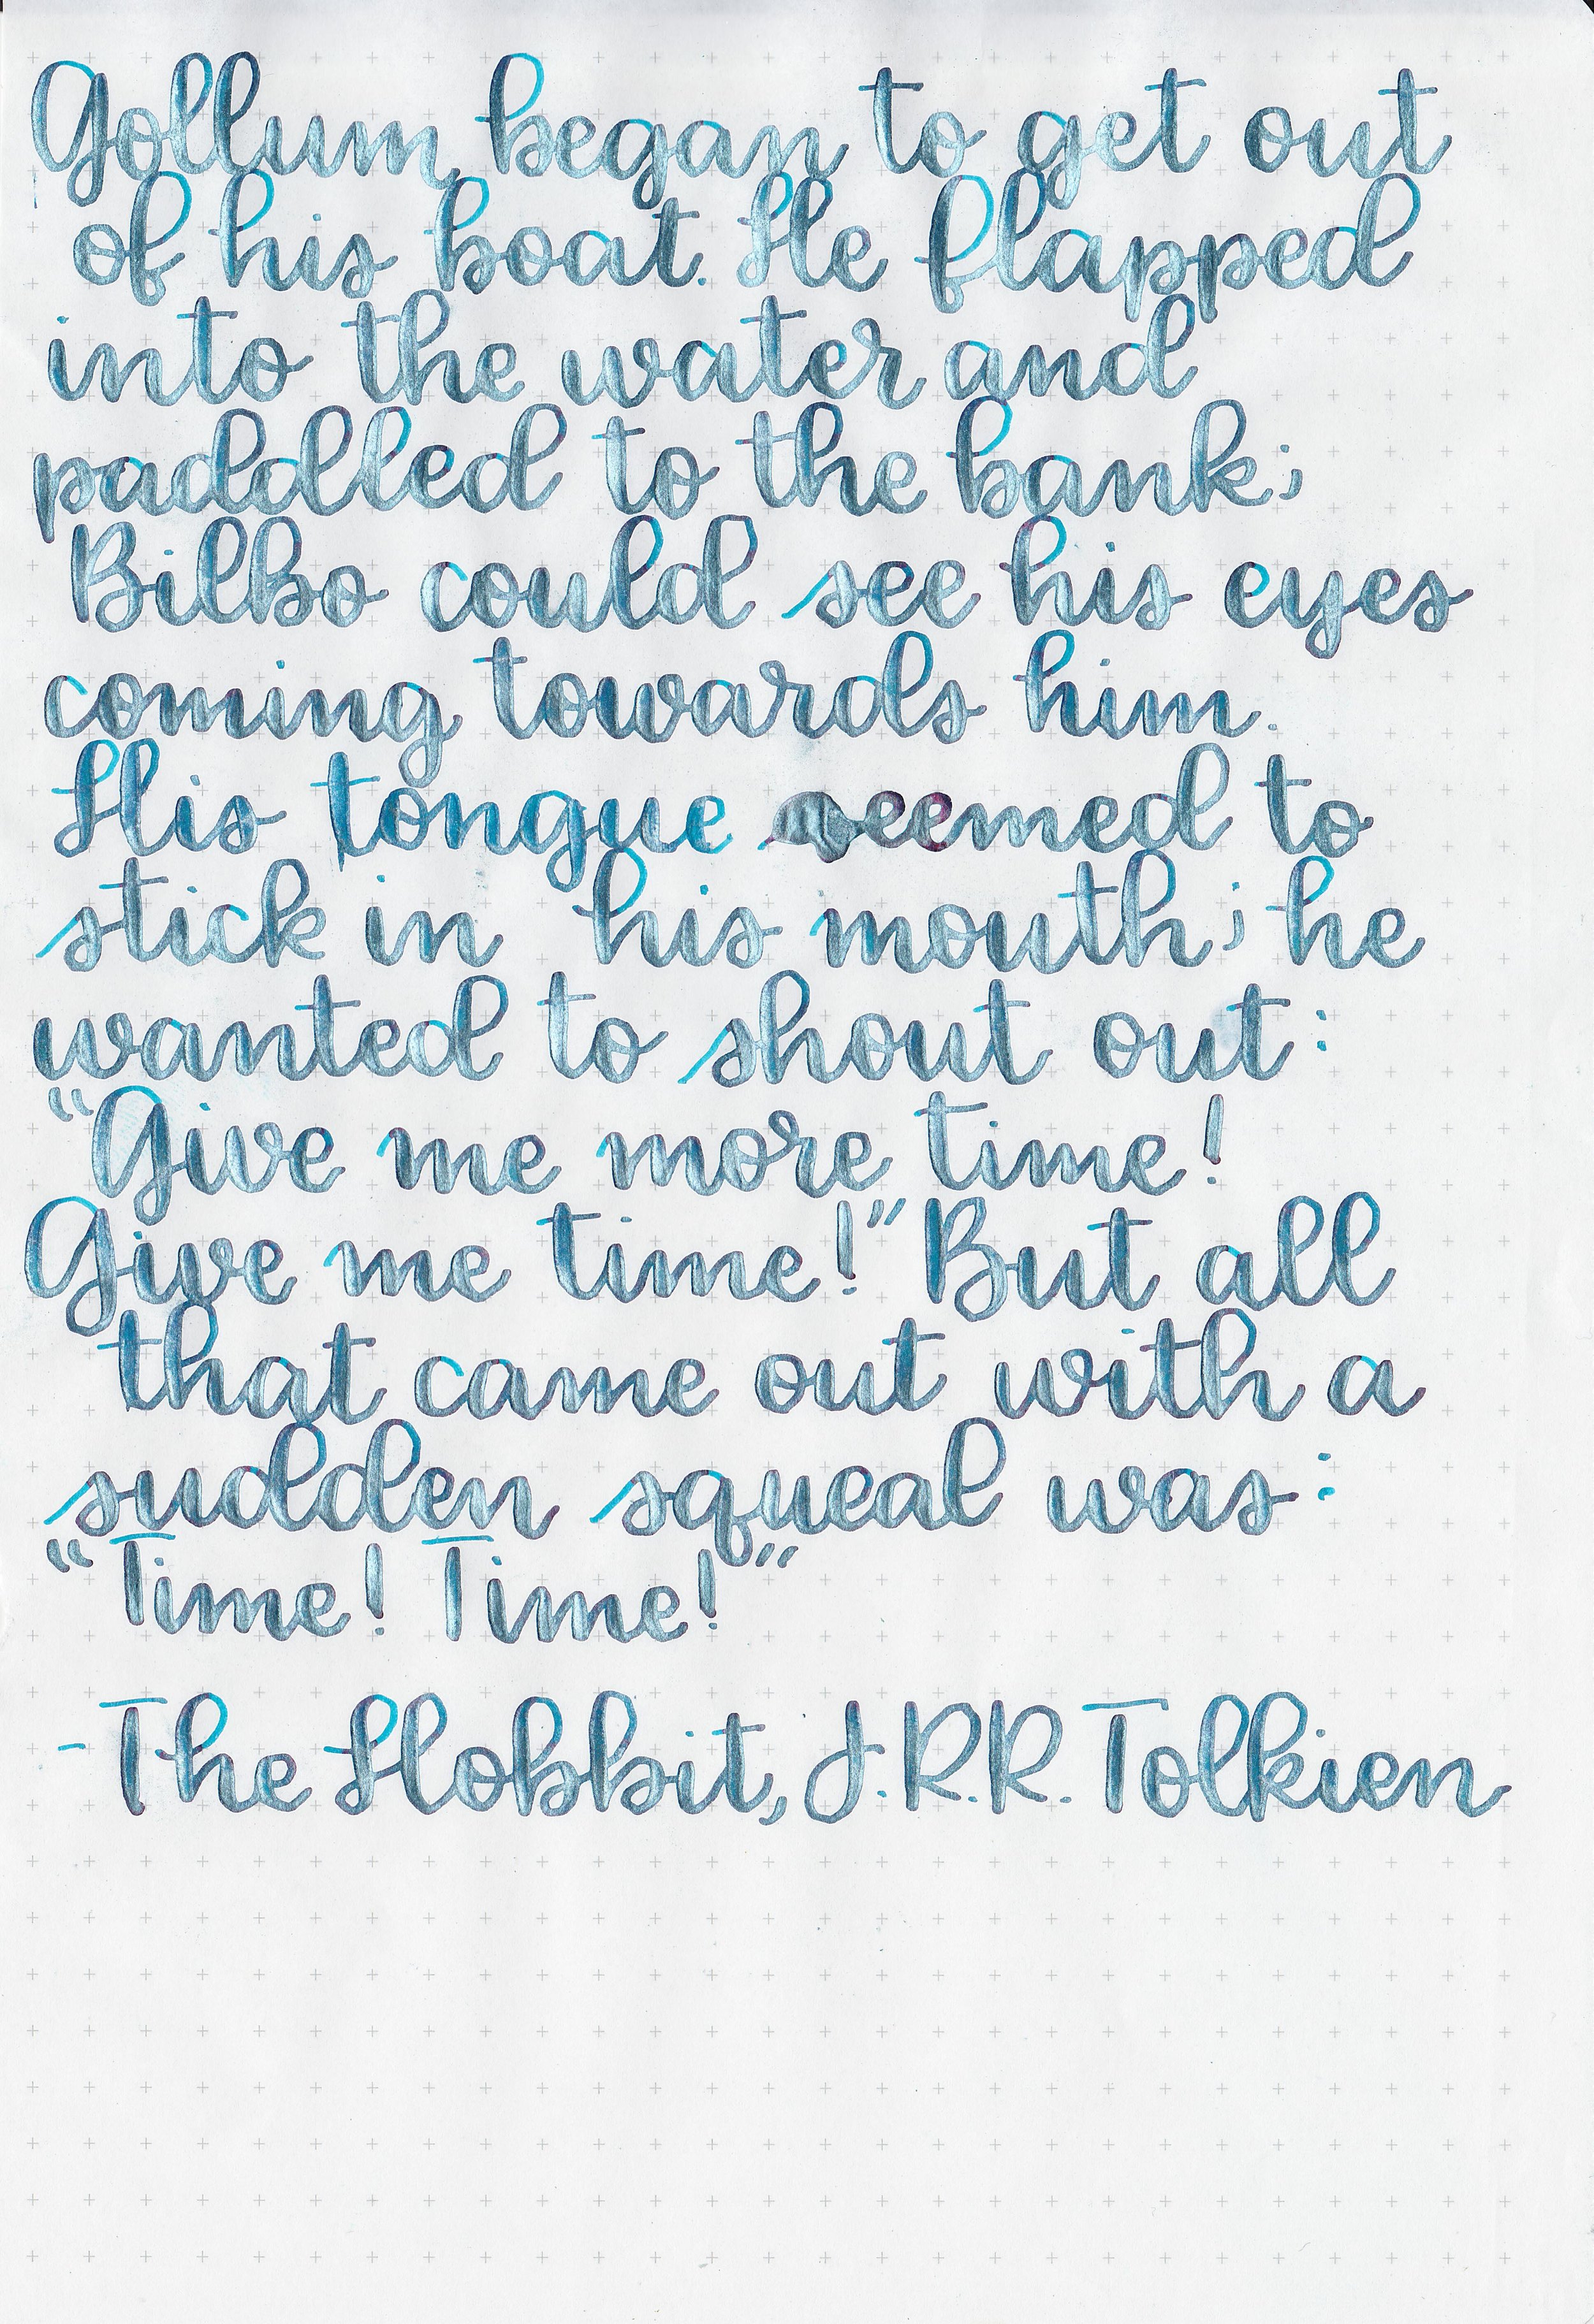 Gollum began to get out
of his boat. He flapped
into the water and
paddled to the bank;
Bilbo could see his eyes
coming towards him.
His tongue seemed to
stick in his mouth; he
wanted to shout out:
“Give me more time!
Give me time!” But all
that came out with a
sudden squeal was:
“Time! Time!”
-The Hobbit, J.R.R. Tolkien